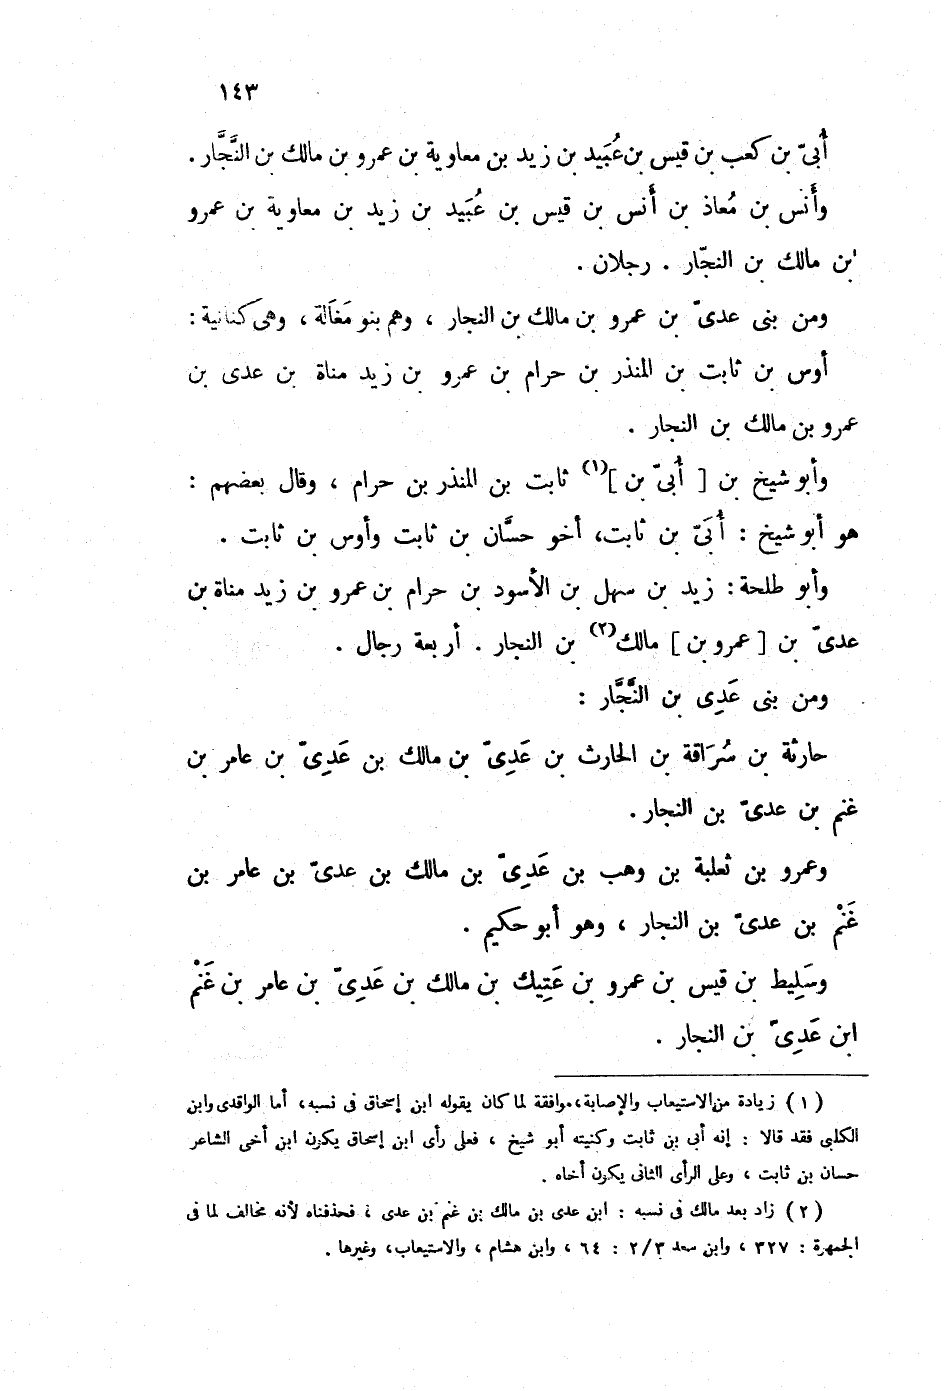 ١٤٣
أُبىّ بن كعب بن قيس بن عُبَيد بن زيد بن معاوية بن عمرو بن مالك بن النَّجَّار .
وأَنَس بن مُعاذ بن أَنس بن قيس بن عُبَيد بن زيد بن معاوية بن عمرو
ابن مالك بن النجّار . رجلان .
ومن بنى عدىّ بن عمرو بن مالك بن النجار ، وهم بنو مَغَالة ، وهى كنانية :
أوس بن ثابت بن المنذر بن حرام بن عمرو بن زيد مناة بن عدى بن
عمرو بن مالك بن النجار .
وأبو شيخ بن [ أُبىّ بن ](١) ثابت بن المنذر بن حرام ، وقال بعضهم :
هو أبو شيخ : أُبَىّ بن ثابت، أخو حسَّان بن ثابت وأوس بن ثابت .
وأبو طلحة : زيد بن سهل بن الأسود بن حرام بن عمرو بن زيد مناة بن
عدىّ بن [ عمرو بن ] مالك(٢) بن النجار . أربعة رجال .
ومن بنى عَدِى بن النَّجَّار :
حارثة بن سُرَاقة بن الحارث بن عَدِىّ بن مالك بن عَدِىّ بن عامر بن
غنم بن عدىّ بن النجار .
وعمرو بن ثعلبة بن وهب بن عَدِىّ بن مالك بن عدىّ بن عامر بن
غَنْم بن عدىّ بن النجار ، وهو أبو حكيم .
وسَلِيط بن قيس بن عمرو بن عَتِيك بن مالك بن عَدِىّ بن عامر بن غَنْم
ابن عَدِىّ بن النجار .
(١) زيادة من الاستيعاب والإصابة، موافقة لما كان يقوله ابن إسحاق فى نسبه، أما الواقدى وابن
الكلبى فقد قالا : إنه أبى بن ثابت وكنيته أبو شيخ ، فعلى رأى ابن إسحاق يكون ابن أخى الشاعر
حسان بن ثابت ، وعلى الرأى الثانى يكون أخاه .
(٢) زاد بعد مالك فى نسبه : ابن عدى بن مالك بن غنم بن عدى ، فحذفناه لأنه مخالف لما فى
الجمهرة : ٣٢٧ ، وابن سعد ٢/٣ : ٦٤ ، وابن هشام ، والاستيعاب، وغيرها .